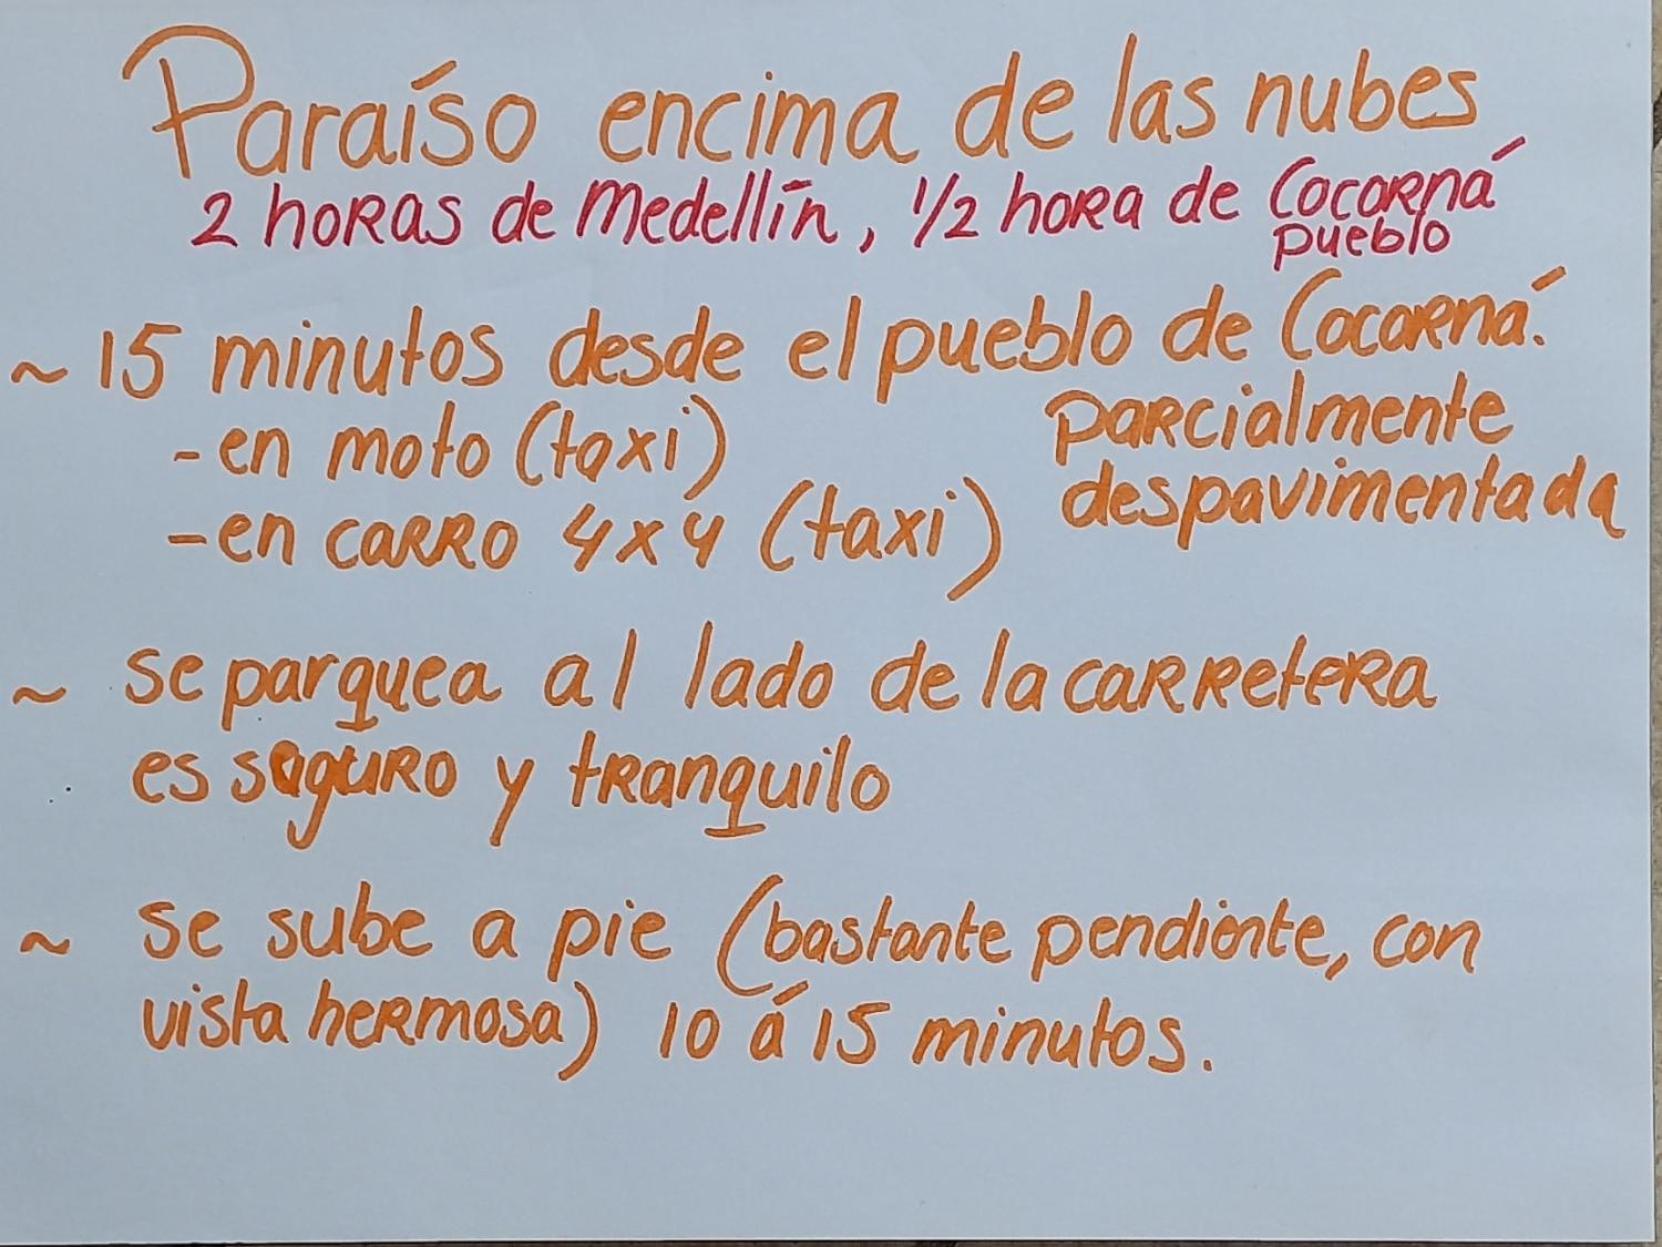 Paraíso encima de las nubes
2 horas de Medellín, 1/2 hora de Cocorná
pueblo
~ 15 minutos desde el pueblo de Cocorná.
- en moto (taxi)
parcialmente
despavimentada
- en carro 4x4 (taxi)
~ se parquea al lado de la carretera
es seguro y tranquilo
~ se sube a pie (bastante pendiente, con
vista hermosa) 10 á 15 minutos.